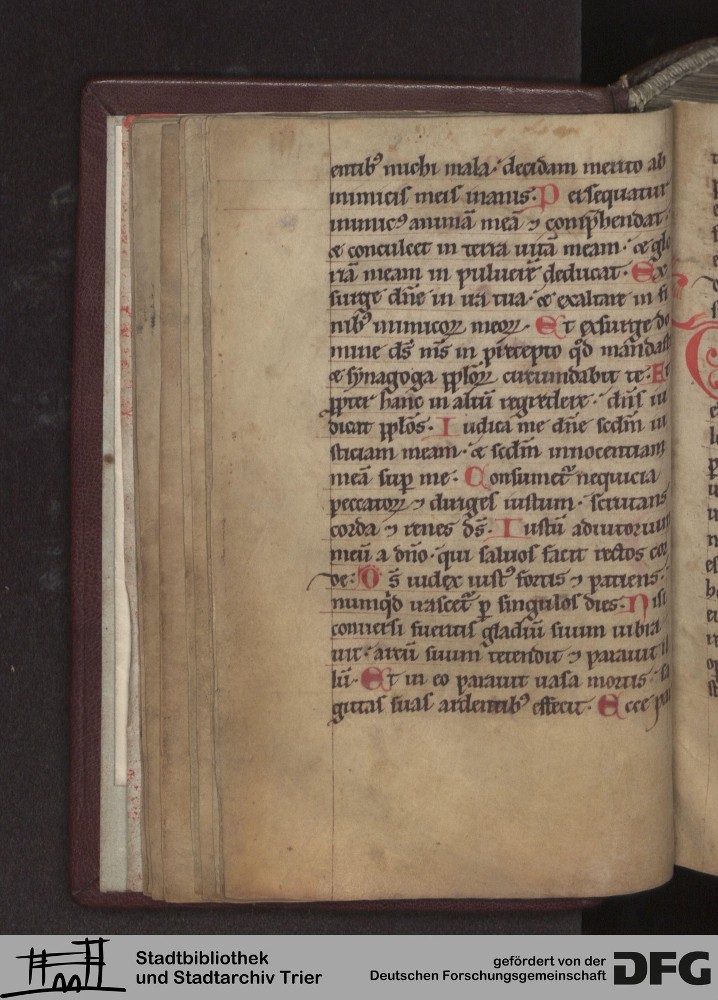 entib᷒ michi mala· decidam merito ab
inimicis meis inanis· Persequatur
inimic᷒ animā meā ⁊ comp̄hendat·
⁊ conculcet in terra uitā meam· ⁊ glo
riā meam in puluerē deducat· Ex
surge dn̄e in ira tua· ⁊ exaltare in fi
nib᷒ inimicoꝝ meoꝝ· Et exsurge do
mine ds̄ ms̄ in precepto qd̄ mandasti
⁊ synagoga pplōꝝ circumdabit te· Et
ꝓpter hanc in altū regredere· dn̄s iu
dicat pplōs· Iudica me dn̄e scd̄m iu
sticiam meam· ⁊ scd̄m innocentiam
meā sup me· Consumet᷑ nequicia
peccatoꝝ ⁊ diriges iustum· scrutans
corda ⁊ renes ds̄· Iustū adiutorium
meū a dn̄o· qui saluos facit rectos cor
de· Ds̄ iudex iust᷒ fortis ⁊ patiens·
numqd̄ irascet᷑ ꝑ singulos dies· Nisi
conuersi fueritis gladiū suum uibra
uit· arcū suum tetendit ⁊ parauit il
lū· Et in eo parauit uasa mortis· sa
gittas suas ardentib᷒ effecit· Ecce
Stadtbibliothek
und Stadtarchiv Trier
gefördert von der
Deutschen Forschungsgemeinschaft
DFG